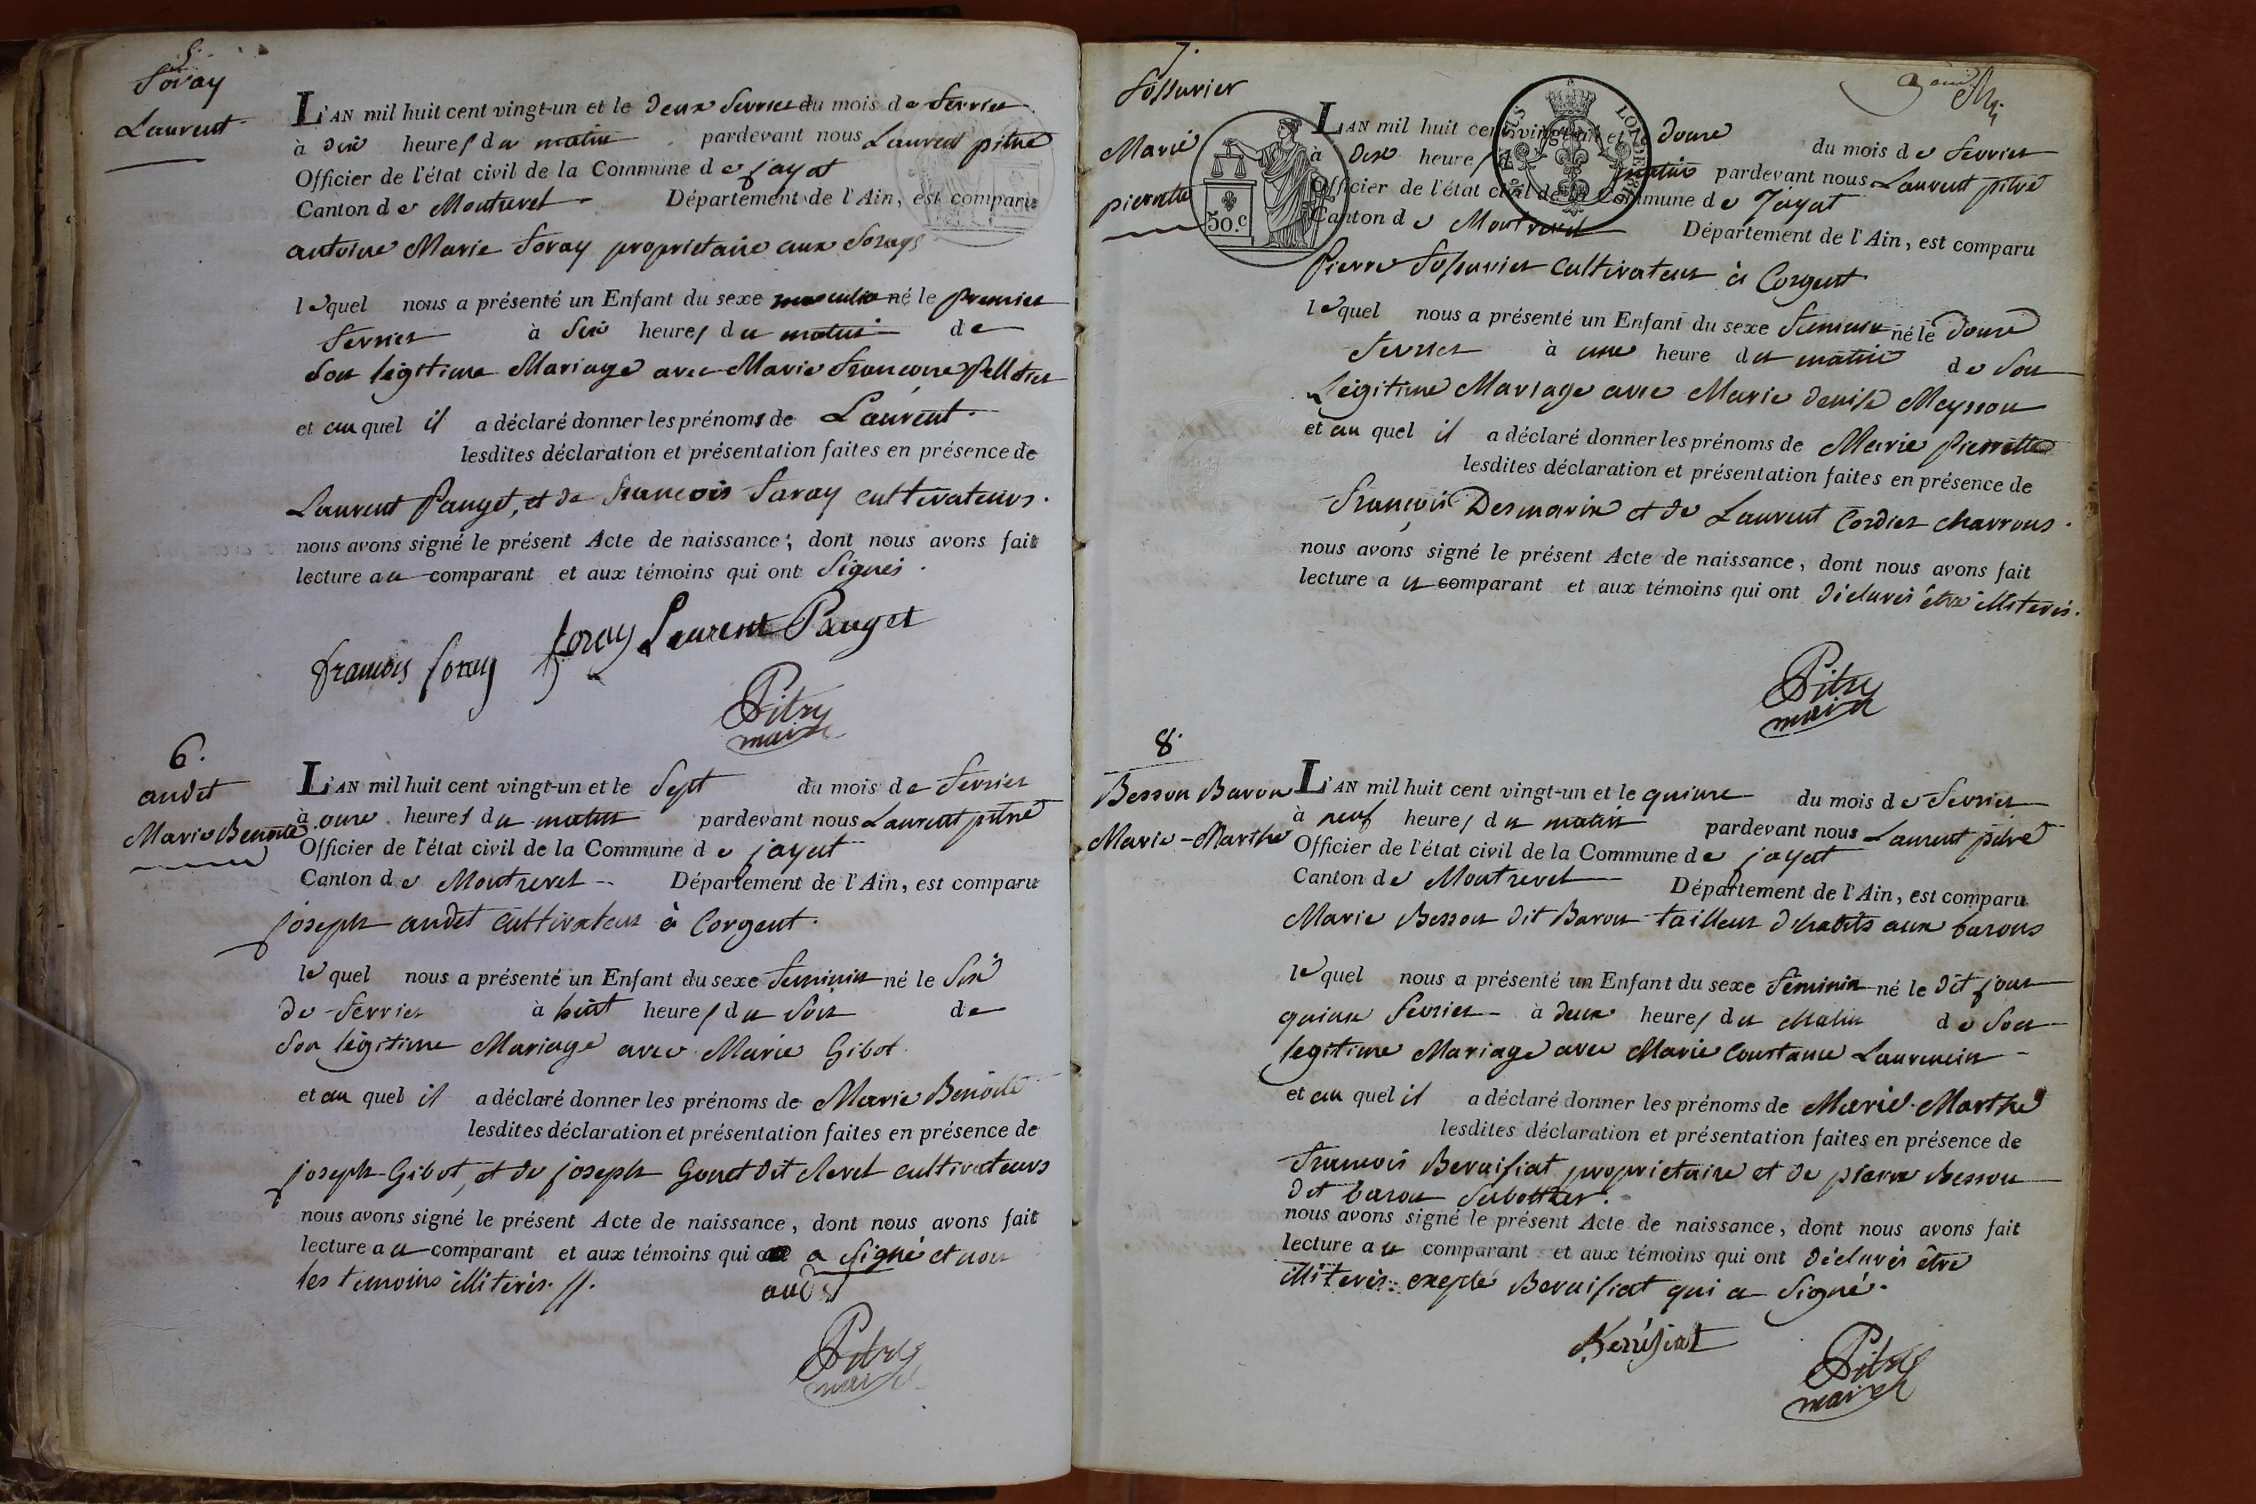 5.
Soray
Laurent
L'AN mil huit cent vingt-un et le deux fevrier du mois de fevrier
à dix heures du matin pardevant nous Laurent pitre
Officier de l'état civil de la Commune de jayat
Canton de Montrevel Département de l'Ain, est comparu
antoine Marie Soray proprietaire aux Sorays
lequel nous a présenté un Enfant du sexe masculin né le premier
fevrier à six heures du matin de
son légitime Mariage avec Marie francoise Pelletier
et auquel il a déclaré donner les prénoms de Laurent.
lesdites déclaration et présentation faites en présence de
Laurent Pauget, et de francois Soray cultivateurs.
nous avons signé le présent Acte de naissance, dont nous avons fait
lecture au comparant et aux témoins qui ont signés.
francois soray Soray Laurent Pauget
Pitre
maire
6.
audet
Marie Benoite
L'AN mil huit cent vingt-un et le sept du mois de fevrier
à onze heures du matin pardevant nous Laurent pitre
Officier de l'état civil de la Commune de jayat
Canton de Montrevel Département de l'Ain, est comparu
joseph audet cultivateur à Corgent.
lequel nous a présenté un Enfant du sexe feminin né le six
de fevrier à huit heures du soir de
son légitime Mariage avec Marie Gibot.
et auquel il a déclaré donner les prénoms de Marie Benoite
lesdites déclaration et présentation faites en présence de
joseph Gibot, et de joseph Gonet dit clevel cultivateurs
nous avons signé le présent Acte de naissance, dont nous avons fait
lecture au comparant et aux témoins qui a signé et non
les temoins illiterés.
audet
Pitre
maire
7.
Sossurier
Marie
pierrette
50.c
L'AN mil huit cent vingt-un et le douze du mois de fevrier
à dix heures du matin pardevant nous Laurent pitre
Officier de l'état civil de la Commune de Jayat
Canton de Montrevel Département de l'Ain, est comparu
Pierre Sossurier cultivateur à Corgent
lequel nous a présenté un Enfant du sexe feminin né le douze
fevrier à une heure du matin de son
Légitime Mariage avec Marie denise Meysson
et auquel il a déclaré donner les prénoms de Marie Pierrette
lesdites déclaration et présentation faites en présence de
françois Desmaris et de Laurent Cordier charrons.
nous avons signé le présent Acte de naissance, dont nous avons fait
lecture au comparant et aux témoins qui ont déclarés être illiterés.
Pitre
maire
8.
Besson Baron
Marie-Marthe
L'AN mil huit cent vingt-un et le quinze du mois de fevrier
à neuf heures du matin pardevant nous Laurent pitre
Officier de l'état civil de la Commune de jayat
Canton de Montrevel Département de l'Ain, est comparu
Marie Besson dit Baron tailleur d'habits aux barons
lequel nous a présenté un Enfant du sexe féminin né le dit jour
quinze fevrier à deux heures du Matin de son
legitime Mariage avec Marie Constance Laurencin
et auquel il a déclaré donner les prénoms de Marie-Marthe
lesdites déclaration et présentation faites en présence de
francois Beruisiat proprietaire et de pierre Besson
dit baron sabottier.
nous avons signé le présent Acte de naissance, dont nous avons fait
lecture au comparant et aux témoins qui ont déclarés être
illiterés excepté Beruisiat qui a signé.
Pitre
maire